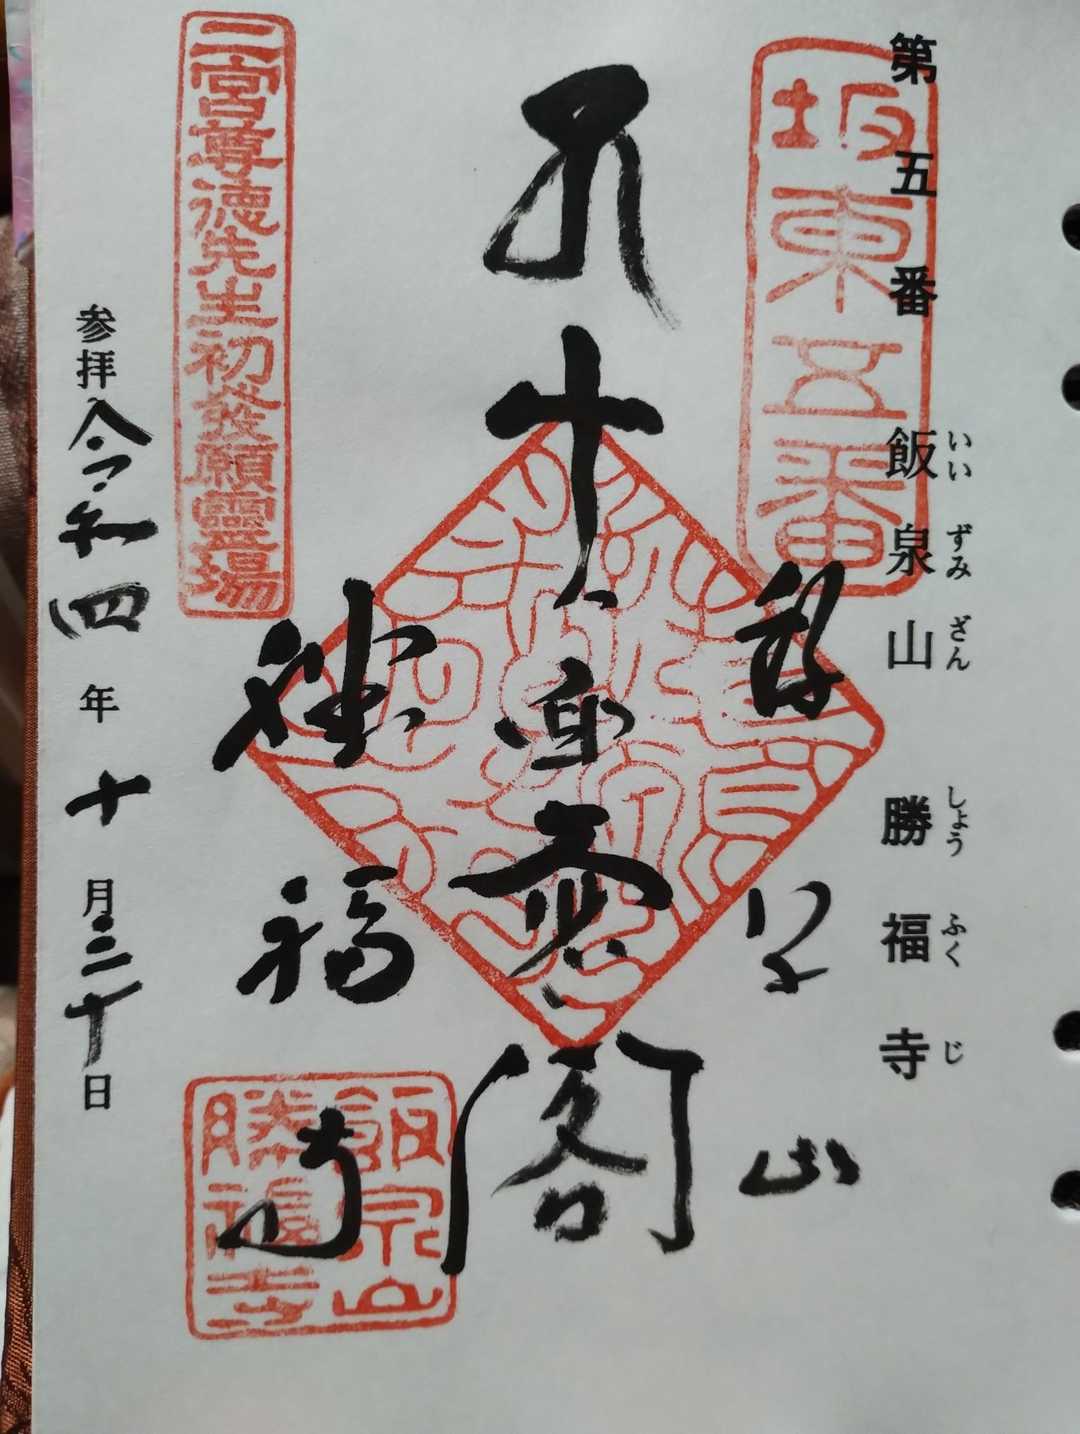 第五番 飯泉山 勝福寺
いいずみざん しょうふくじ
坂東五番
飯泉山
十一面
閣
勝福寺
二宮尊徳先生初發願靈場
飯泉山
勝福寺
参拝 令和四年十月三十日